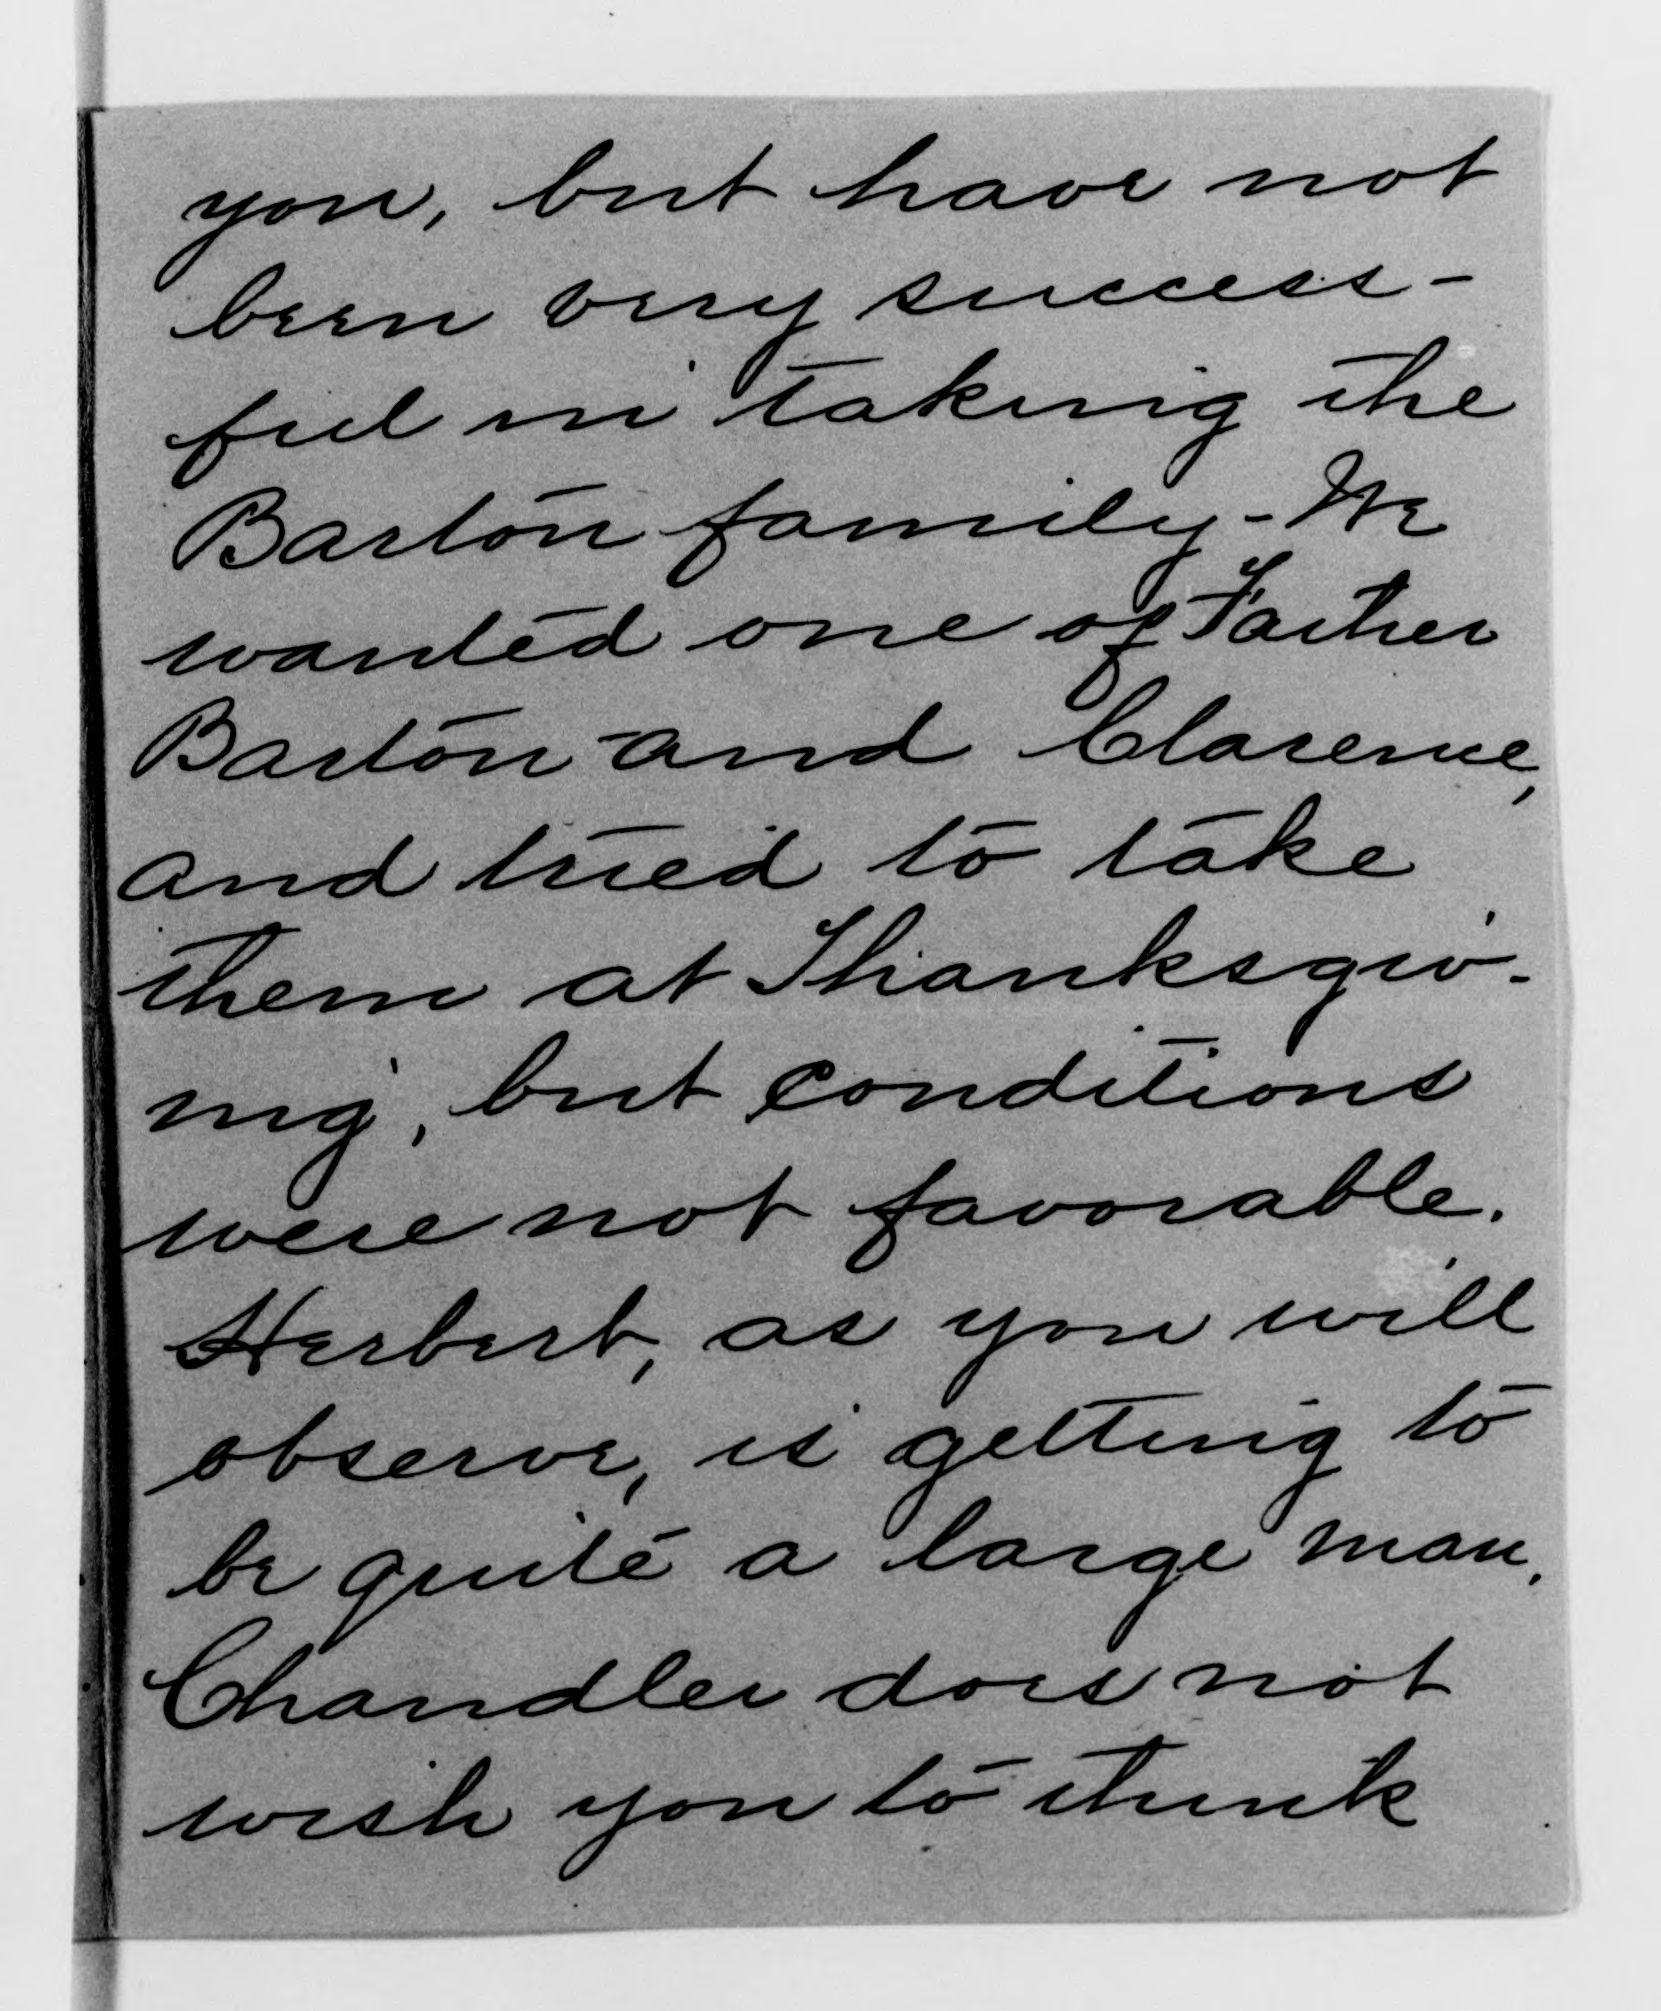 you, but have not
been very success-
ful in taking the
Barton family - We
wanted one of Father
Barton - and Clarence,
and tried to take
them at Thanksgiv-
ing, but conditions
were not favorable.
Herbert, as you will
observe, is getting to
be quite a large man.
Chandler does not
wish you to think